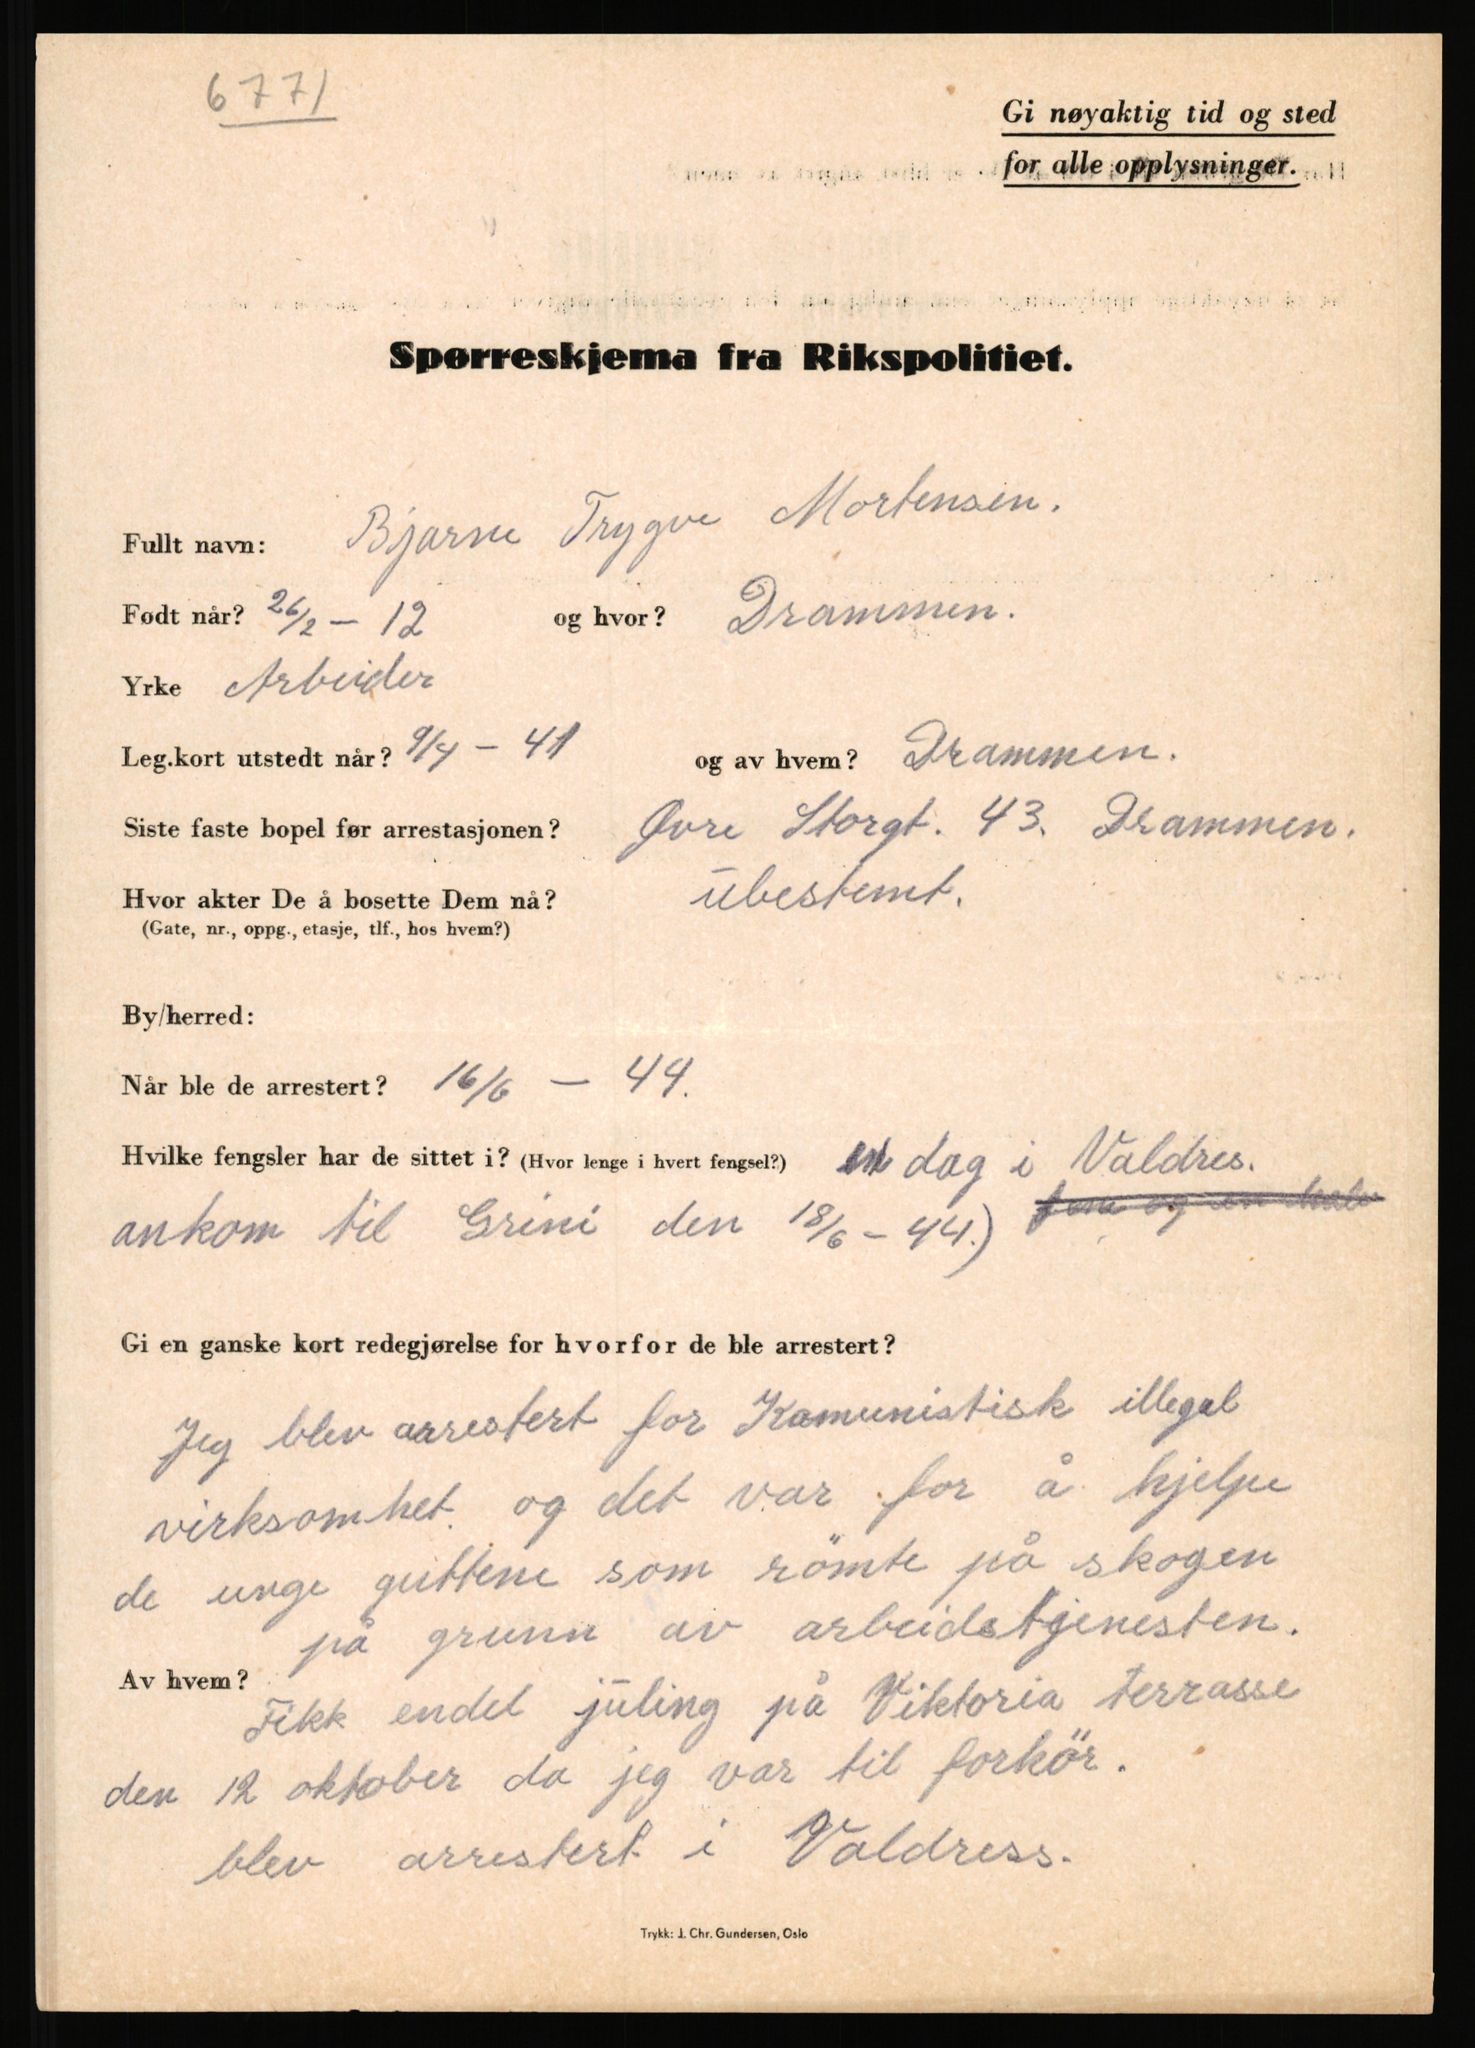 6771
Gi nøyaktig tid og sted
for alle opplysninger.
Spørreskjema fra Rikspolitiet.
Fullt navn: Bjarne Trygve Mortensen.
Født når? 26/2 - 12 og hvor? Drammen.
Yrke Arbeider
Leg.kort utstedt når? 9/4 - 41 og av hvem? Drammen.
Siste faste bopel før arrestasjonen? Øvre Storgt. 43. Drammen.
Hvor akter De å bosette Dem nå? ubestemt.
(Gate, nr., oppg., etasje, tlf., hos hvem?)
By/herred:
Når ble de arrestert? 16/6 - 44.
Hvilke fengsler har de sittet i? (Hvor lenge i hvert fengsel?) en dag i Valdres.
ankom til Grini den 18/6 - 44.)
Gi en ganske kort redegjørelse for hvorfor de ble arrestert?
Jeg blev arrestert for Kamunistisk illegal
virksomhet. og det var for å hjelpe
de unge guttene som römte på skogen
på grunn av arbeidstjenesten.
Av hvem?
Fikk endel juling på Viktoria terrasse
den 12 oktober da jeg var til forhör.
blev arrestert i Valdress.
Trykk: J. Chr. Gundersen, Oslo